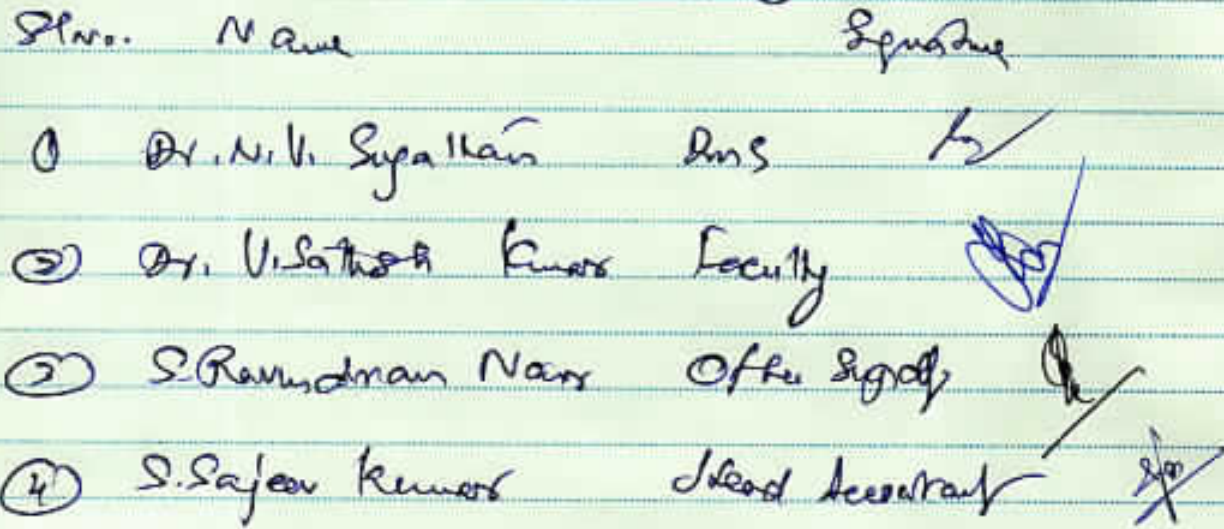 Sl No. Name Signature
① Dr. N. V. Sugathan DMS
② Dr. V. Sathish Kumar Faculty
③ S. Ravindran Nair Office
④ S. Sajeev Kumar Head Accountant